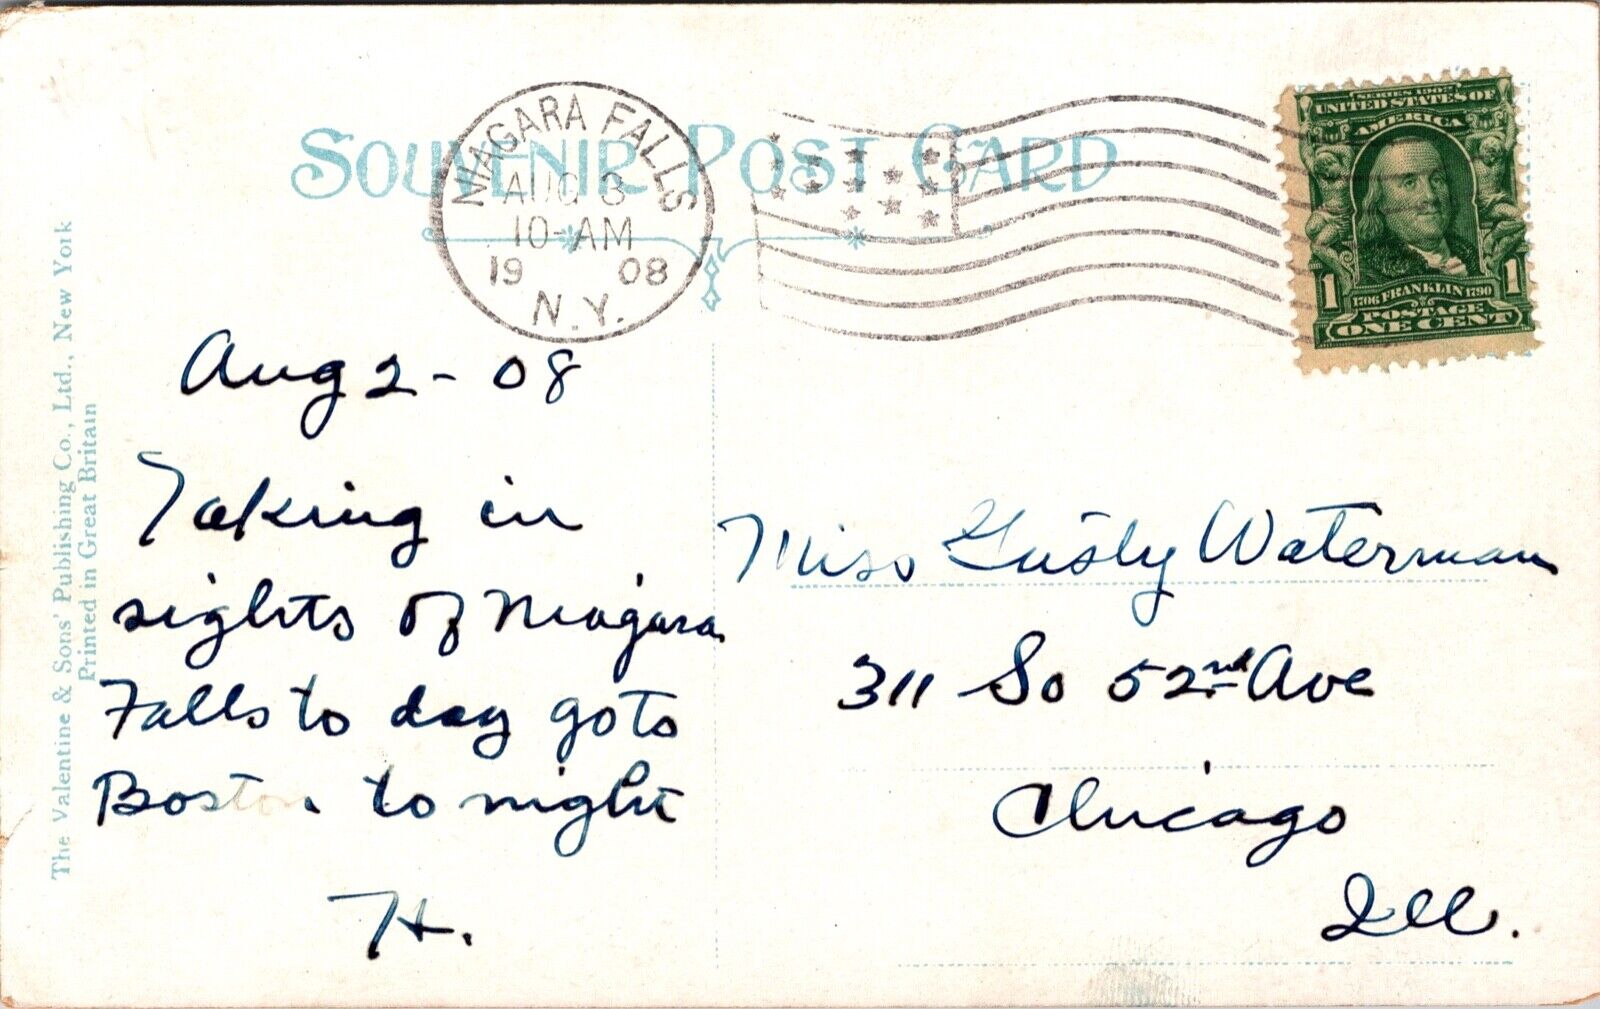 SOUVENIR POST CARD
NIAGARA FALLS
AUG 3
10-AM
19 08
N.Y.
SERIES 1902
UNITED STATES OF
AMERICA
1 1
1706 FRANKLIN 1790
POSTAGE
ONE CENT
The Valentine & Sons' Publishing Co., Ltd., New York
Printed in Great Britain
Aug 2 - 08
Taking in
sights of Niagara
Falls to day go to
Boston. to night
H.
Miss Gusty Waterman
311 So 52nd Ave
Chicago
Ill.